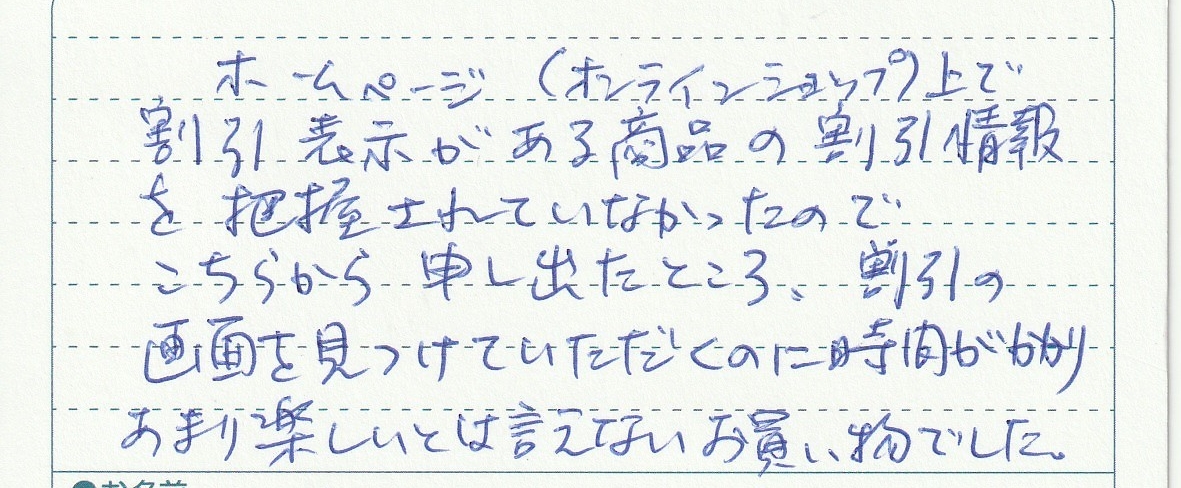 ホームページ (オンラインショップ)上で
割引表示がある商品の割引情報
を把握されていなかったので
こちらから申し出たところ、割引の
画面を見つけていただくのに時間がかかり
あまり楽しいとは言えないお買い物でした。